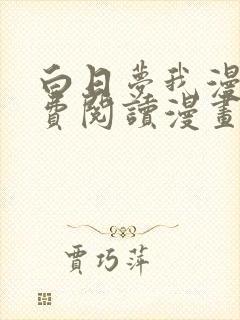 白日夢我漫
費閱讀漫畫
賈巧萍